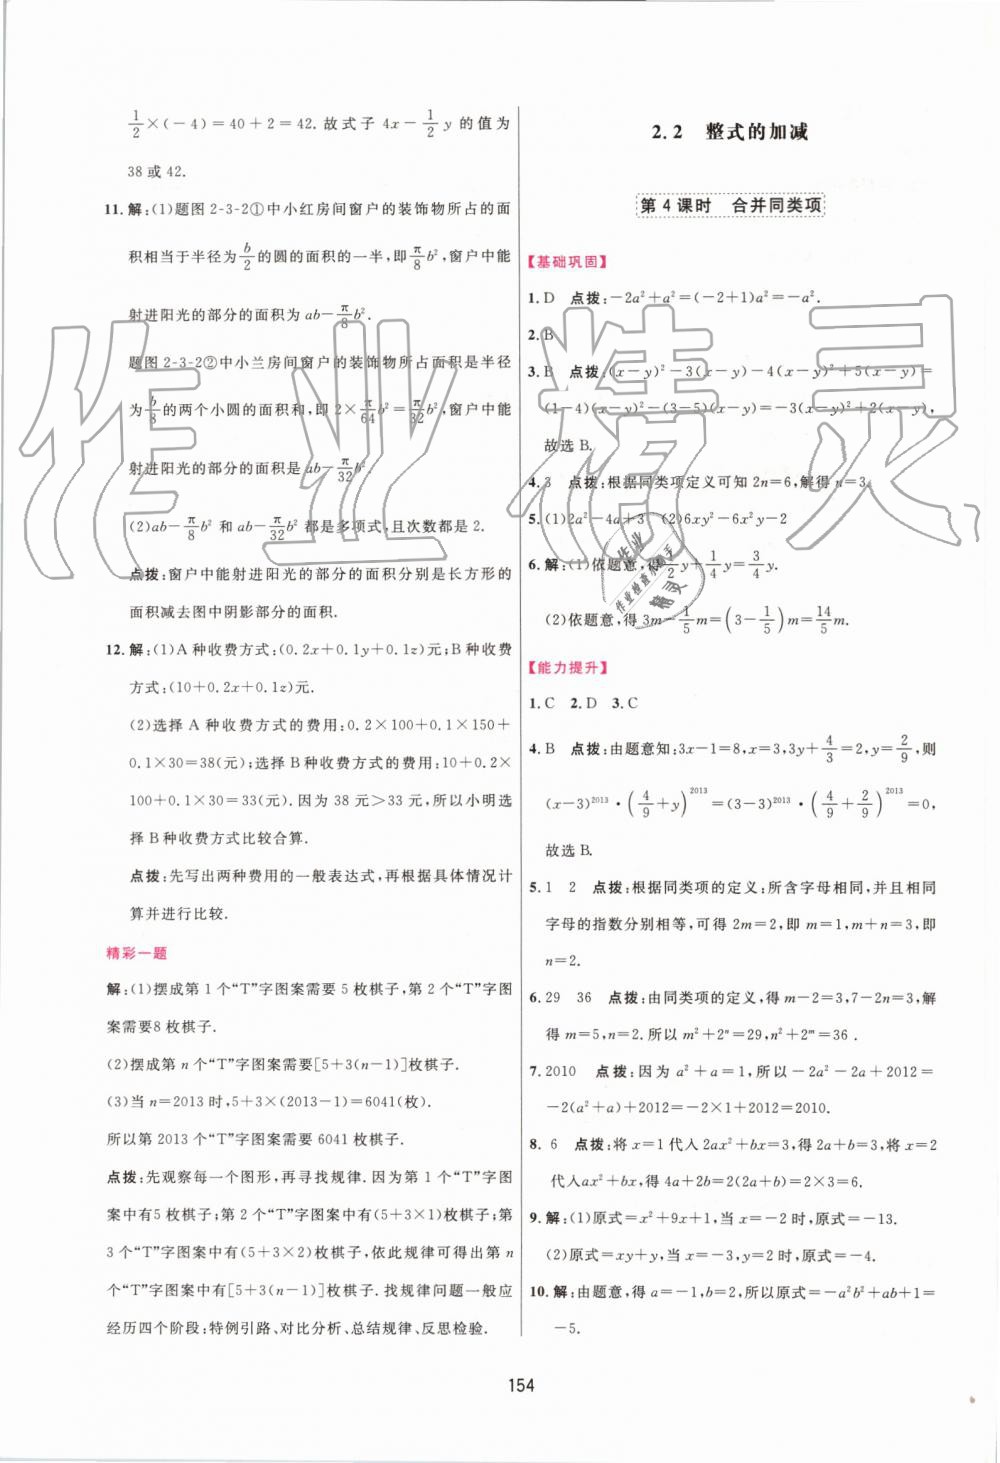 1/2×(-4)=40+2=42.故式子 4x-1/2y 的值为
38或42.
11.解:(1)题图2-3-2①中小红房间窗户的装饰物所占的面
积相当于半径为b/2的圆的面积的一半,即π/8b²,窗户中能
射进阳光的部分的面积为ab-π/8b².
题图2-3-2②中小兰房间窗户的装饰物所占面积是半径
为b/8的两个小圆的面积和,即2×π/64b²=π/32b²,窗户中能
射进阳光的部分的面积是ab-π/32b².
(2)ab-π/8b²和ab-π/32b²都是多项式,且次数都是2.
点拨:窗户中能射进阳光的部分的面积分别是长方形的
面积减去图中阴影部分的面积.
12.解:(1)A种收费方式:(0.2x+0.1y+0.1z)元;B种收费
方式:(10+0.2x+0.1z)元.
(2)选择A种收费方式的费用:0.2×100+0.1×150+
0.1×30=38(元);选择B种收费方式的费用:10+0.2×
100+0.1×30=33(元).因为38元>33元,所以小明选
择B种收费方式比较合算.
点拨:先写出两种费用的一般表达式,再根据具体情况计
算并进行比较.
精彩一题
解:(1)摆成第1个“T”字图案需要5枚棋子,第2个“T”字图
案需要8枚棋子.
(2)摆成第n个“T”字图案需要[5+3(n-1)]枚棋子.
(3)当n=2013时,5+3×(2013-1)=6041(枚).
所以第2013个“T”字图案需要6041枚棋子.
点拨:先观察每一个图形,再寻找规律.因为第1个“T”字图
案中有5枚棋子;第2个“T”字图案中有(5+3×1)枚棋子;第
3个“T”字图案中有(5+3×2)枚棋子,依此规律可得出第n
个“T”字图案中有[5+3(n-1)]枚棋子.找规律问题一般应
经历四个阶段:特例引路、对比分析、总结规律、反思检验.
2.2 整式的加减
第4课时 合并同类项
【基础巩固】
1.D 点拨:-2a²+a²=(-2+1)a²=-a².
2.B
3.B 点拨:(x-y)²-3(x-y)-4(x-y)²+5(x-y)=
(1-4)(x-y)²-(3-5)(x-y)=-3(x-y)²+2(x-y),
故选B.
4.3 点拨:根据同类项定义可知2n=6,解得n=3.
5.(1)2a²-4a+3 (2)6xy²-6x²y-2
6.解:(1)依题意,得1/2y+1/4y=3/4y.
(2)依题意,得3m-1/5m=(3-1/5)m=14/5m.
【能力提升】
1.C 2.D 3.C
4.B 点拨:由题意知:3x-1=8,x=3,3y+4/3=2,y=2/9,则
(x-3)²⁰¹³·(4/9+y)²⁰¹³=(3-3)²⁰¹³·(4/9+2/9)²⁰¹³=0,
故选B.
5.1 2 点拨:根据同类项的定义:所含字母相同,并且相同
字母的指数分别相等,可得2m=2,即m=1,m+n=3,即
n=2.
6.29 36 点拨:由同类项的定义,得m-2=3,7-2n=3,解
得m=5,n=2.所以m²+2ⁿ=29,n²+2ᵐ=36.
7.2010 点拨:因为a²+a=1,所以-2a²-2a+2012=
-2(a²+a)+2012=-2×1+2012=2010.
8.6 点拨:将x=1代入2ax²+bx=3,得2a+b=3,将x=2
代入ax²+bx,得4a+2b=2(2a+b)=2×3=6.
9.解:(1)原式=x²+9x+1,当x=-2时,原式=-13.
(2)原式=xy+y,当x=-3,y=2时,原式=-4.
10.解:由题意,得a=-1,b=2,所以原式=-a²b²+ab+1=
-5.
154
作业精灵
作业
作业检查小助手
精灵